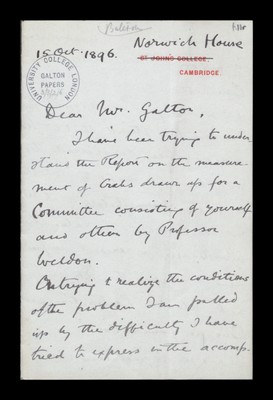 Bateson
15 Oct. 1896. Norwich House
ST JOHN'S COLLEGE,
CAMBRIDGE.
UNIVERSITY COLLEGE LONDON
GALTON
PAPERS
Dear Mr. Galton,
I have been trying to under
stand the Report on the measure
ment of Crabs drawn up for a
Committee consisting of yourself
and others by Professor
Weldon.
On trying to realize the conditions
of the problem I am pulled
up by the difficulty I have
tried to express in the accomp.